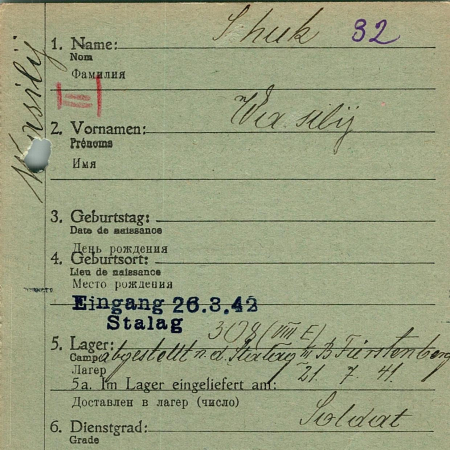 Shuk 32
1. Name:
Nom
Фамилия
Wasilij
Wasilij
2. Vornamen:
Prénoms
Имя
3. Geburtstag:
Date de naissance
День рождения
4. Geburtsort:
Lieu de naissance
Место рождения
Eingang 26.3.42
Stalag
308 (VIII E)
5. Lager:
Camp abgestellt n. d. Stalag III B Fürstenberg
Лагерь
21. 7. 41.
5a. Im Lager eingeliefert am:
Доставлен в лагерь (число)
Soldat
6. Dienstgrad:
Grade